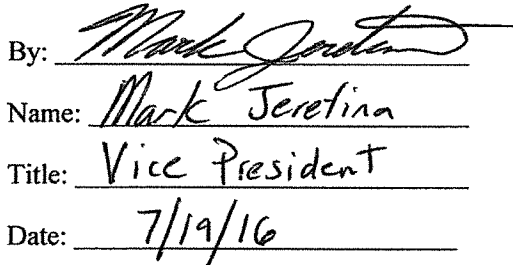 By: Mark Jeretina
Name: Mark Jeretina
Title: Vice President
Date: 7/19/16